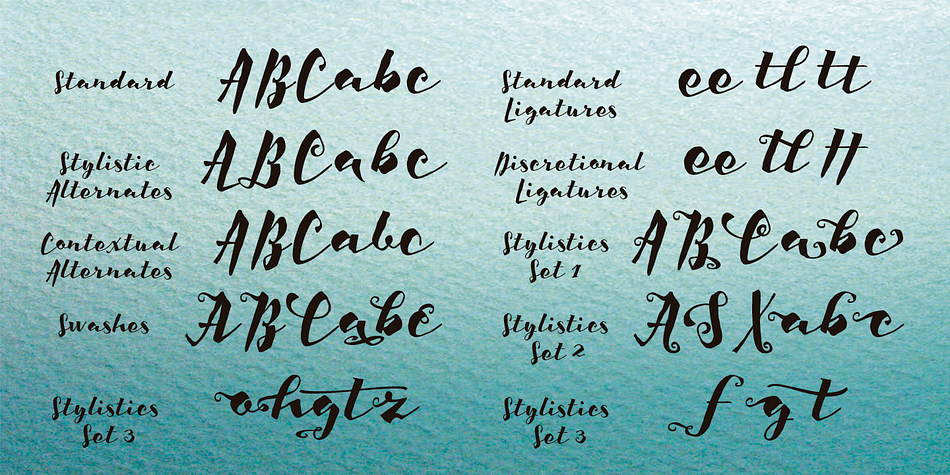 Standard
ABCabc
Stylistic
Alternates
ABCabc
Contextual
Alternates
ABCabc
Swashes
ABCabc
Stylistics
Set 3
ohgtz
Standard
Ligatures
ee tl tt
Discretional
Ligatures
ee tl tt
Stylistics
Set 1
ABCabc
Stylistics
Set 2
ASXabc
Stylistics
Set 3
f gt